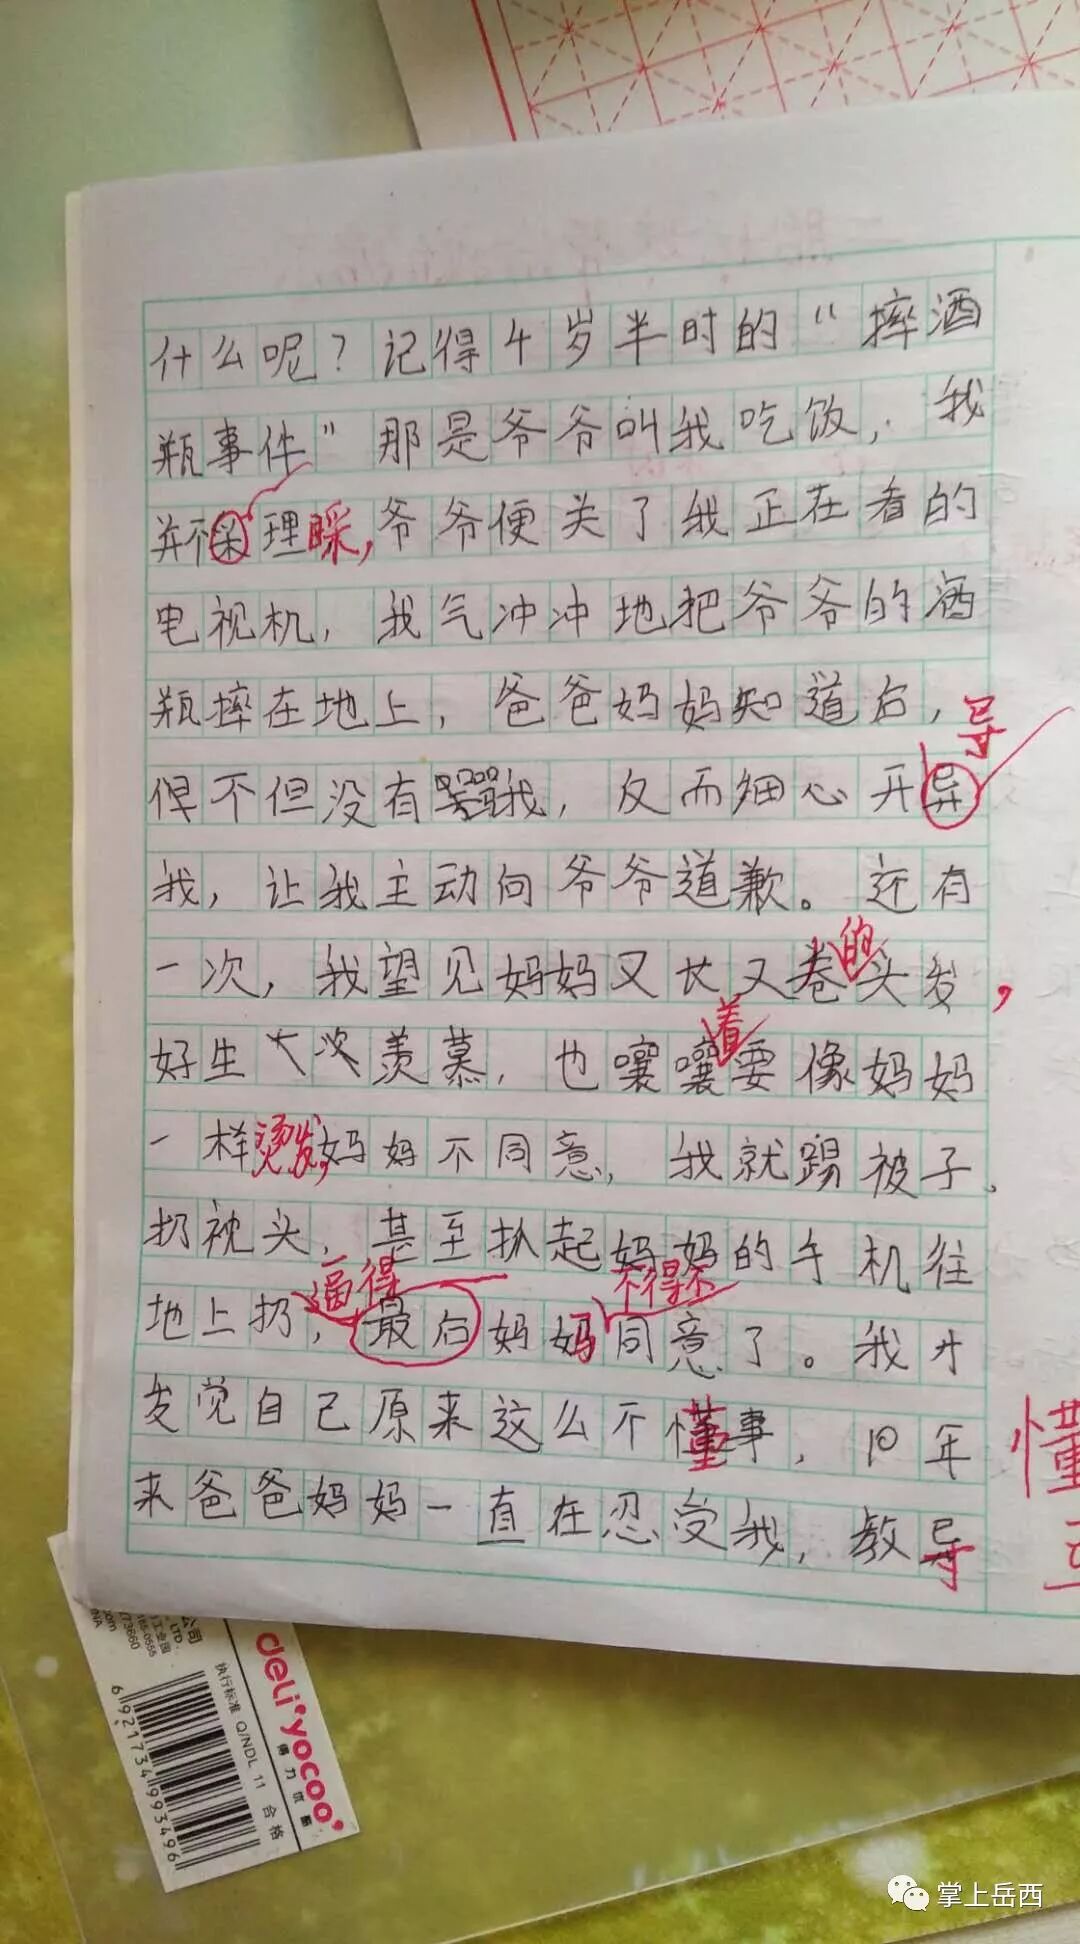 什么呢？记得4岁半时的“摔酒
瓶事件”那是爷爷叫我吃饭，我
并不采理睬，爷爷便关了我正在看的
电视机，我气冲冲地把爷爷的酒
瓶摔在地上，爸爸妈妈知道后，
导
不但没有骂我，反而细心开导
我，让我主动向爷爷道歉。还有
的
一次，我望见妈妈又长又卷头发，
着
好生羡慕，也嚷嚷要像妈妈
一样烫发，妈妈不同意，我就踢被子、
扔枕头，甚至扒起妈妈的手机往
逼得 不得不
地上扔，最后妈妈同意了。我才
发觉自己原来这么不懂事，10年
懂
来爸爸妈妈一直在忍受我，教导
公司
LTD.
工业园
执行标准 Q/NDL 11 合格
deli'yocoo'
得力优酷
6921734993496
掌上岳西